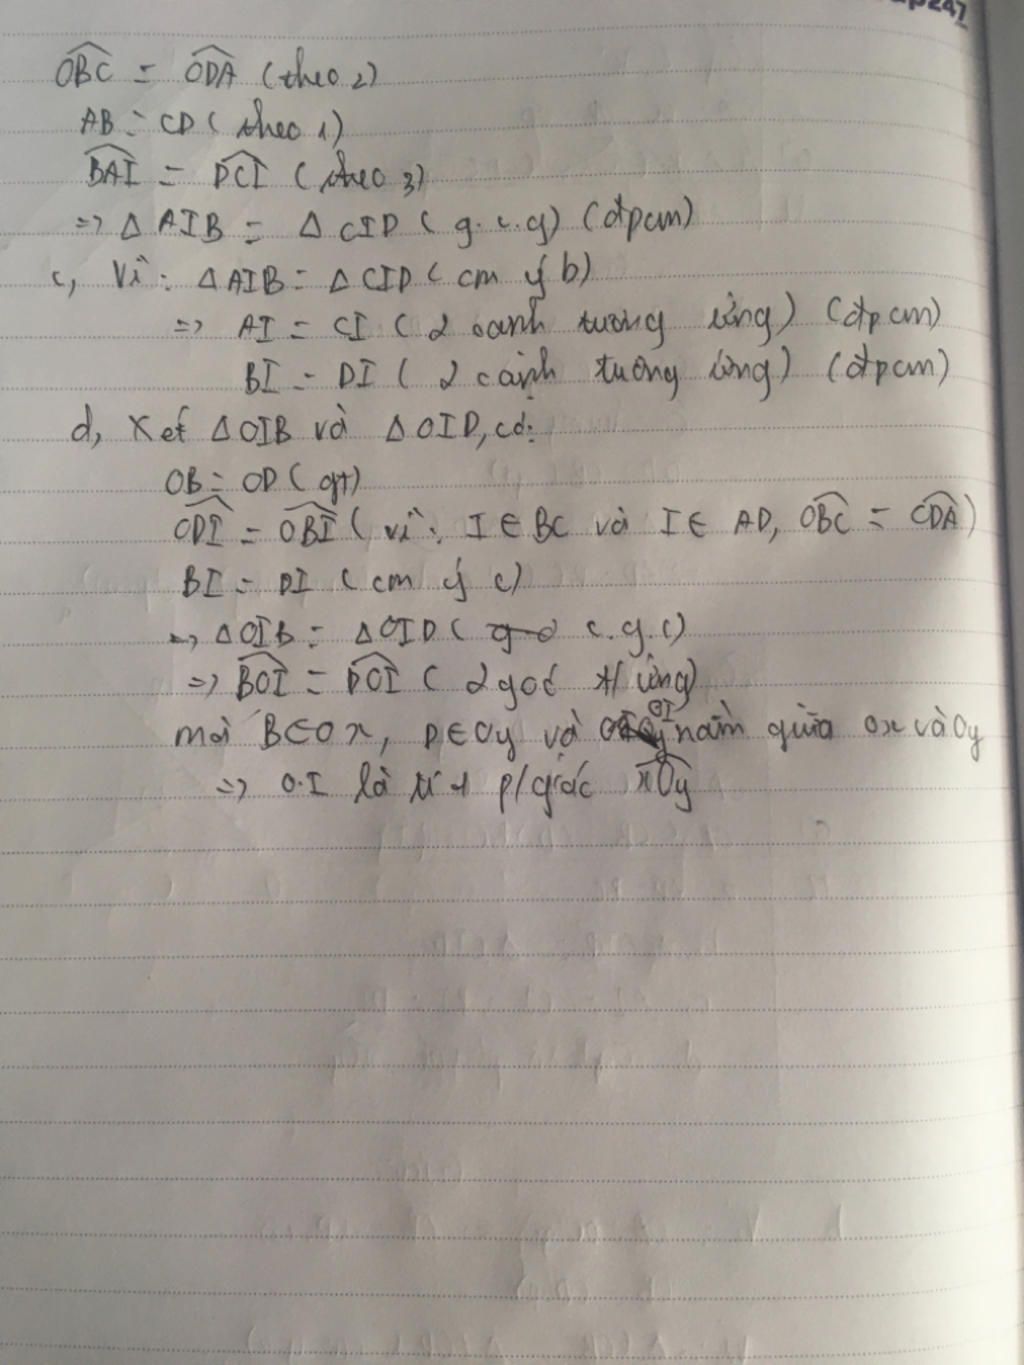 ap247
OBC = ODA (theo 2)
AB = CD (theo 1)
BAI = DCI (theo 3)
=> Δ AIB = Δ CID (g.c.g) (đpcm)
c, Vì: Δ AIB = Δ CID (cm ý b)
=> AI = CI (2 cạnh tương ứng) (đpcm)
BI = DI (2 cạnh tương ứng) (đpcm)
d, Xét Δ OIB và Δ OID, có:
OB = OD (gt)
ODI = OBI (vì: I ∈ BC và I ∈ AD, OBC = CDA)
BI = DI (cm ý c)
=> Δ OIB = Δ OID ( c.g.c)
=> BOI = DOI (2 góc t/ ứng)
mà B ∈ Ox, D ∈ Oy và OI nằm giữa Ox và Oy
=> O.I là p/giác xOy